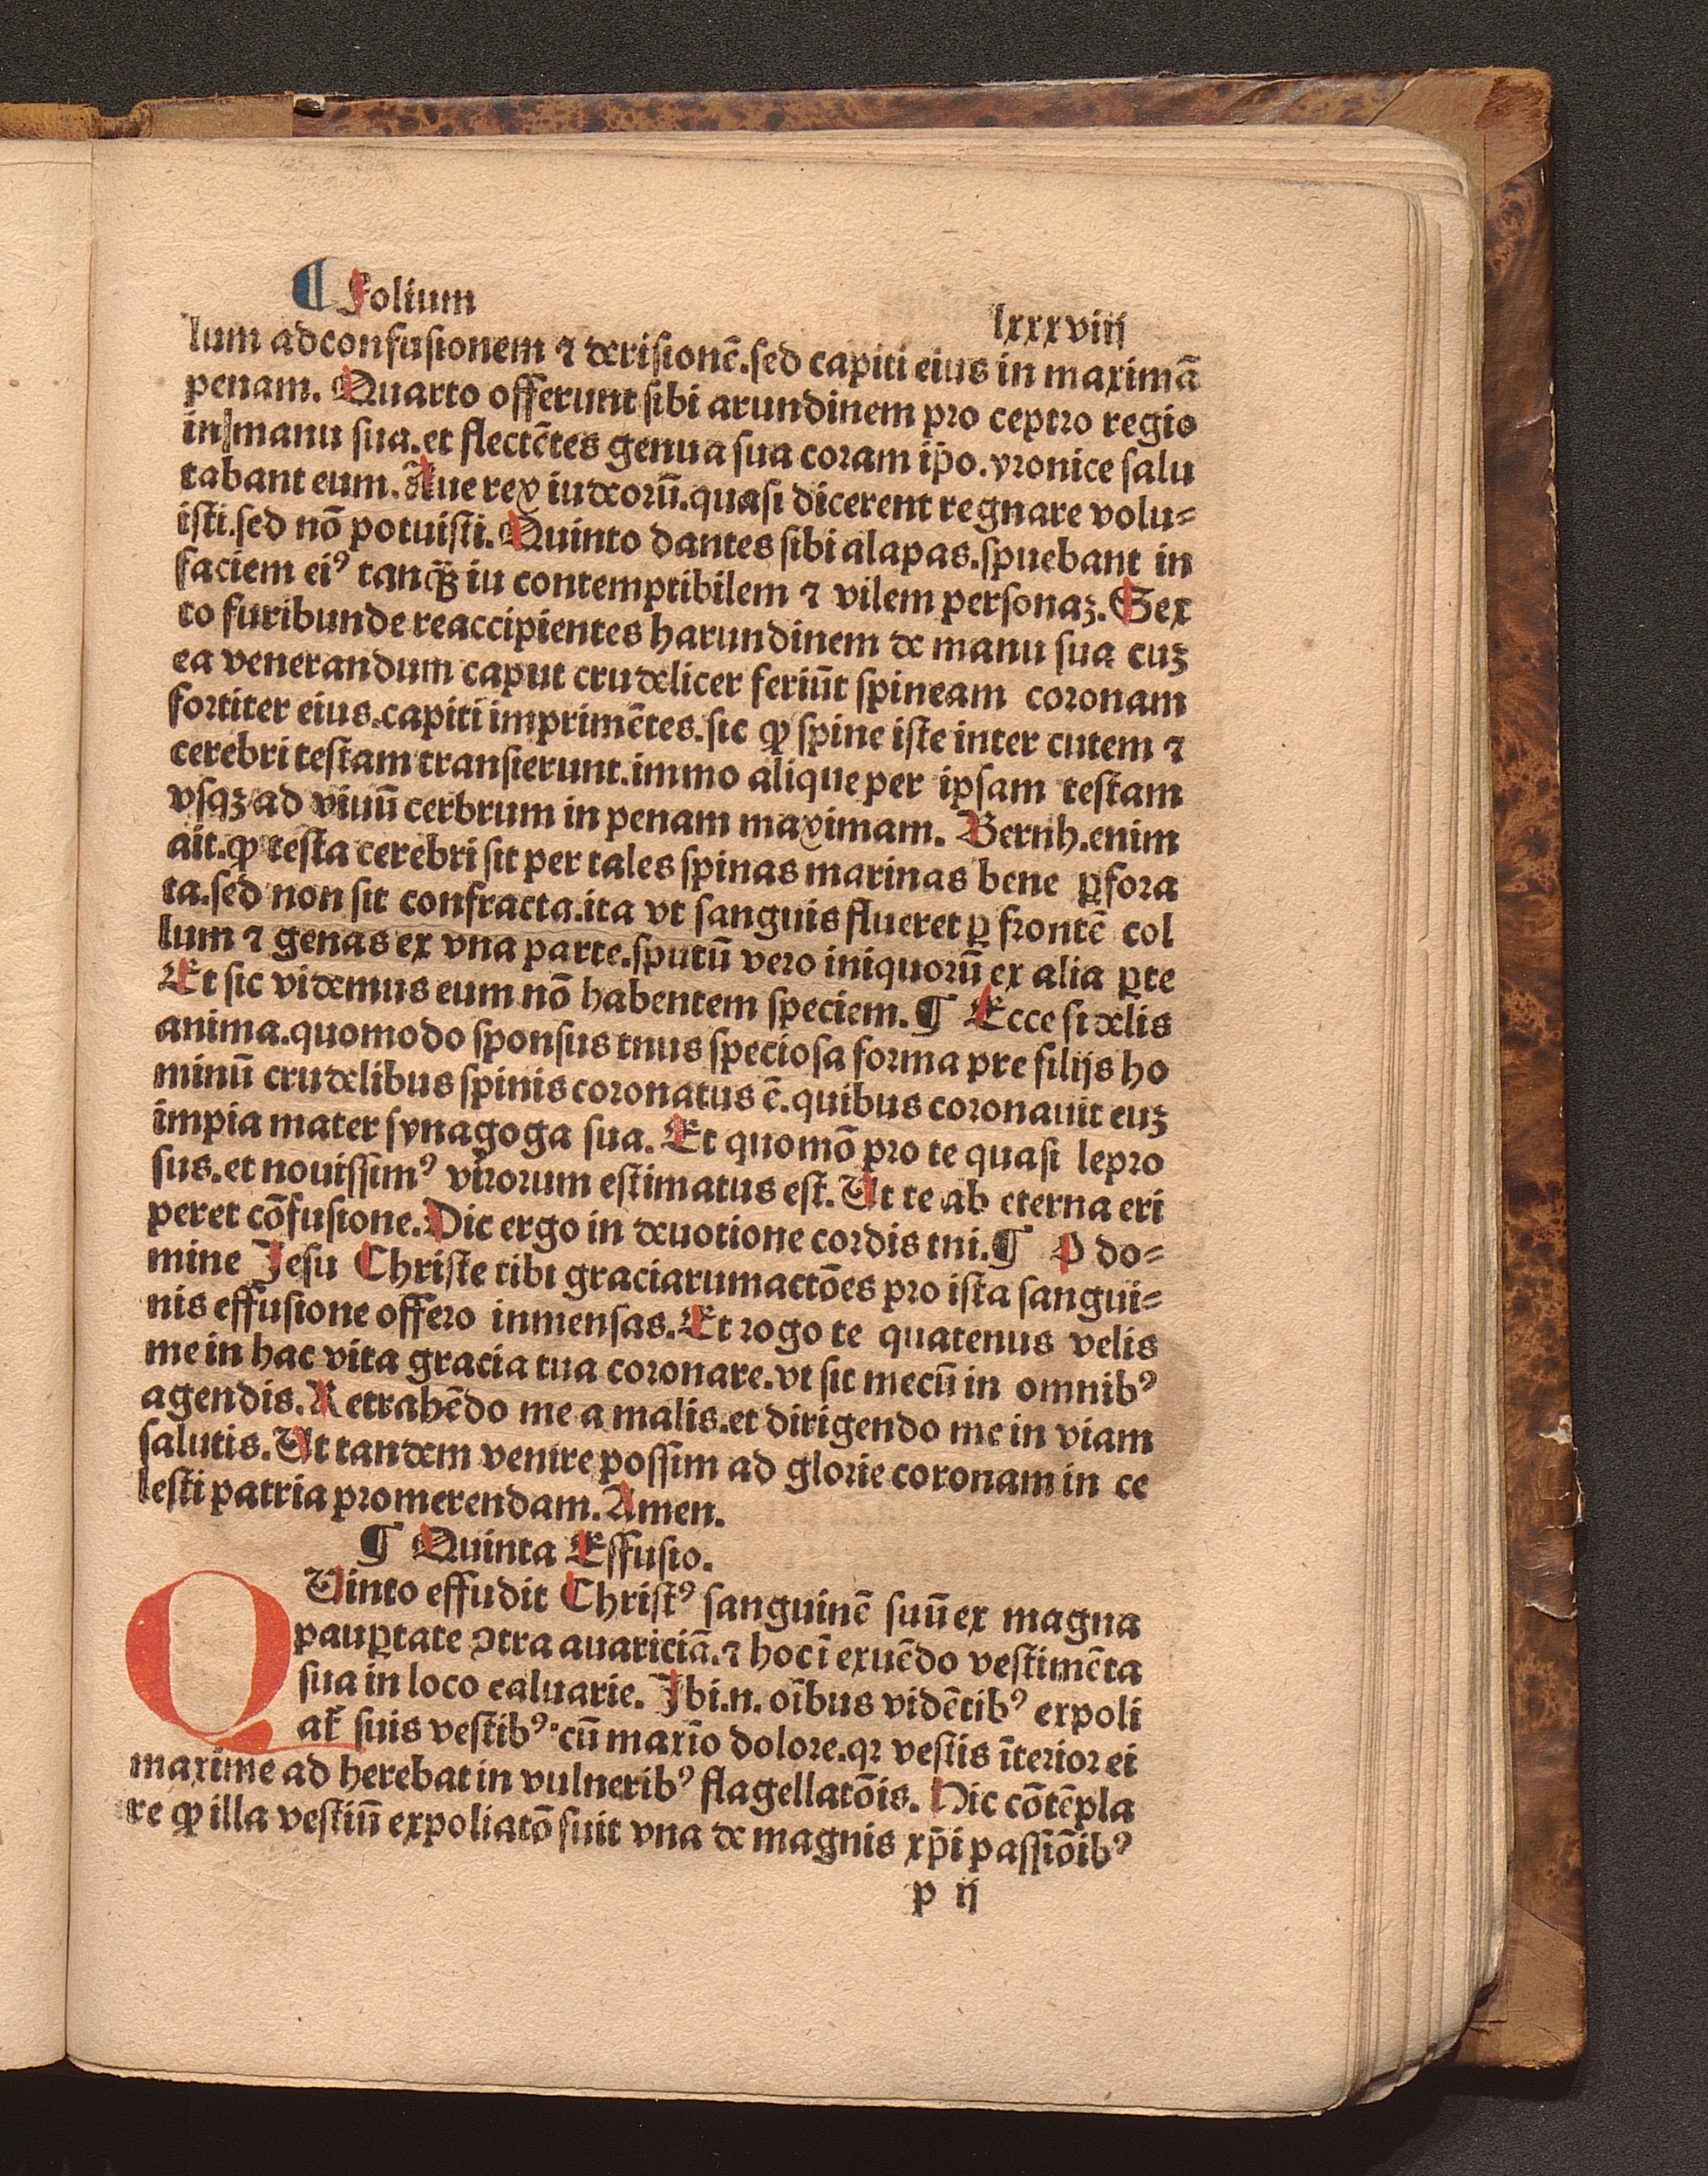 ¶ Folium lxxxviij
lum adconfusionem ⁊ derisionē.sed capiti eius in maximā
penam. Quarto offerunt sibi arundinem pro ceptro regio
in manu sua.et flectētes genua sua coram ip̄o.yronice salu
tabant eum. Aue rex iudeorū.quasi dicerent regnare volu=
isti.sed nō potuisti. Quinto dantes sibi alapas.spuebant in
faciem eiꝰ tanqꝫ̄ iu contemptibilem ⁊ vilem personaꝫ. Sex
to furibunde reaccipientes harundinem de manu sua cuꝫ
ea venerandum caput crudelicer feriūt spineam coronam
fortiter eius.capiti imprimētes.sic ꝙ spine iste inter cutem ⁊
cerebri testam transierunt.immo alique per ipsam testam
vsqꝫ ad viuū cerbrum in penam maximam. Bernh.enim
ait.ꝙ testa cerebri sit per tales spinas marinas bene ꝑfora
ta.sed non sit confracta.ita vt sanguis flueret ꝑ frontē col
lum ⁊ genas ex vna parte.sputū vero iniquorū ex alia ꝑte
Et sic videmus eum nō habentem speciem.¶ Ecce fidelis
anima.quomodo sponsus tnus speciosa forma pre filijs ho
minū crudelibus spinis coronatus ē.quibus coronauit euꝫ
impia mater synagoga sua. Et quomō pro te quasi lepro
sus.et nouissimꝰ virorum estimatus est. Ut te ab eterna eri
peret cōfusione. Dic ergo in deuotione cordis tni.¶ O do=
mine Jesu Christe tibi graciarumactōes pro ista sangui=
nis effusione offero inmensas. Et rogo te quatenus velis
me in hac vita gracia tua coronare.vt sit mecū in omnibꝰ
agendis. Retrahēdo me a malis.et dirigendo me in viam
salutis. Ut tandem venire possim ad glorie coronam in ce
lesti patria promerendam. Amen.
¶ Quinta Effusio.
QUinto effudit Christꝰ sanguinē suū ex magna
pauꝑtate ꝯtra auariciā.⁊ hoc ī exuēdo vestimēta
sua in loco caluarie. Ibi.n. oībus vidētibꝰ expoli
at̄ suis vestibꝰ.cū maxīo dolore.qꝛ vestis īterior ei
maxime ad herebat in vulneribꝰ flagellatōis. Hic cōtēpla
re ꝙ illa vestiū expoliatō fuit vna de magnis xp̄i passiōibꝰ
p ij